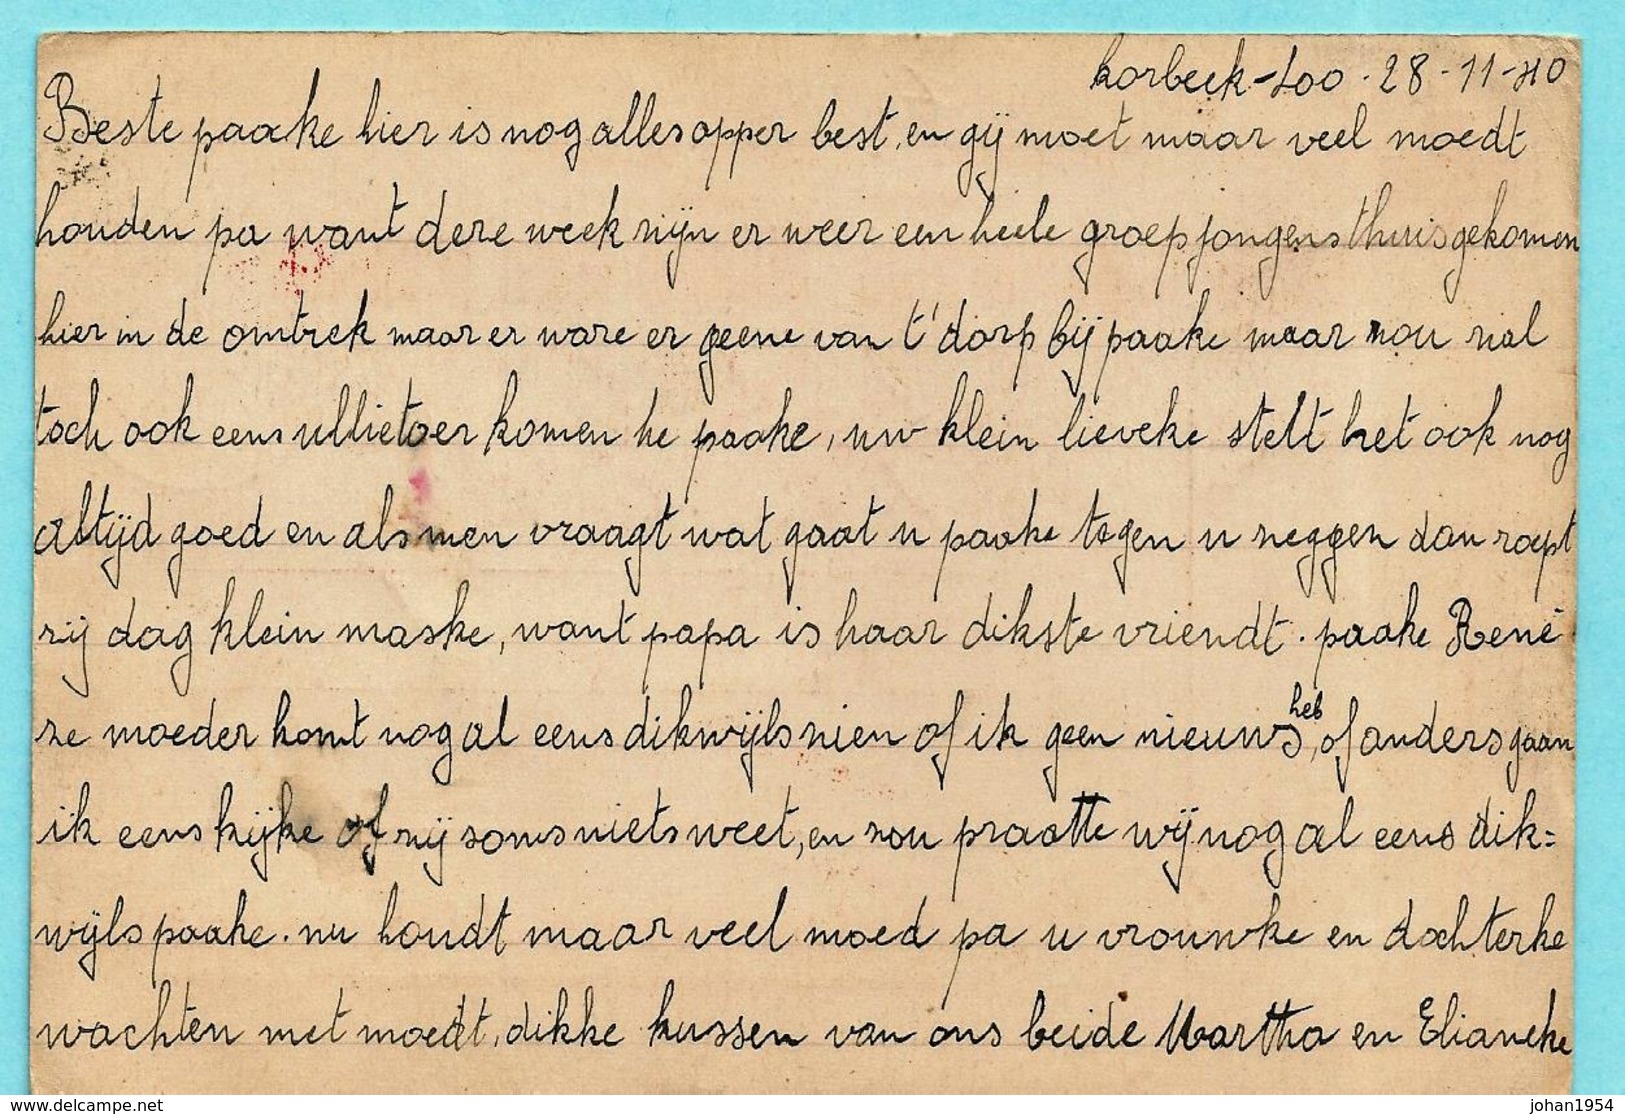 korbeek-Loo. 28-11-40
Beste paake hier is nog alles opper best, en gij moet maar veel moedt
houden pa want deze week zijn er weer een heele groep jongens thuis gekomen
hier in de omtrek maar er ware er geene van t' dorp bij paake maar nou zal
toch ook eens ullie toer komen he paake, uw klein lieveke stelt het ook nog
altijd goed en als men vraagt wat gaat u paake tegen u zeggen dan roept
zij dag klein maske, want papa is haar dikste vriendt. paake René
ze moeder komt nog al eens dikwijls zien of ik geen nieuws heb, of anders gaan
ik eens kijke of zij soms niets weet, en zou praatte wij nog al eens dik=
wijls paake. nu houdt maar veel moed pa u vrouwke en dochterke
wachten met moedt, dikke kussen van ons beide Martha en Elianeke
www.delcampe.net
johan1954